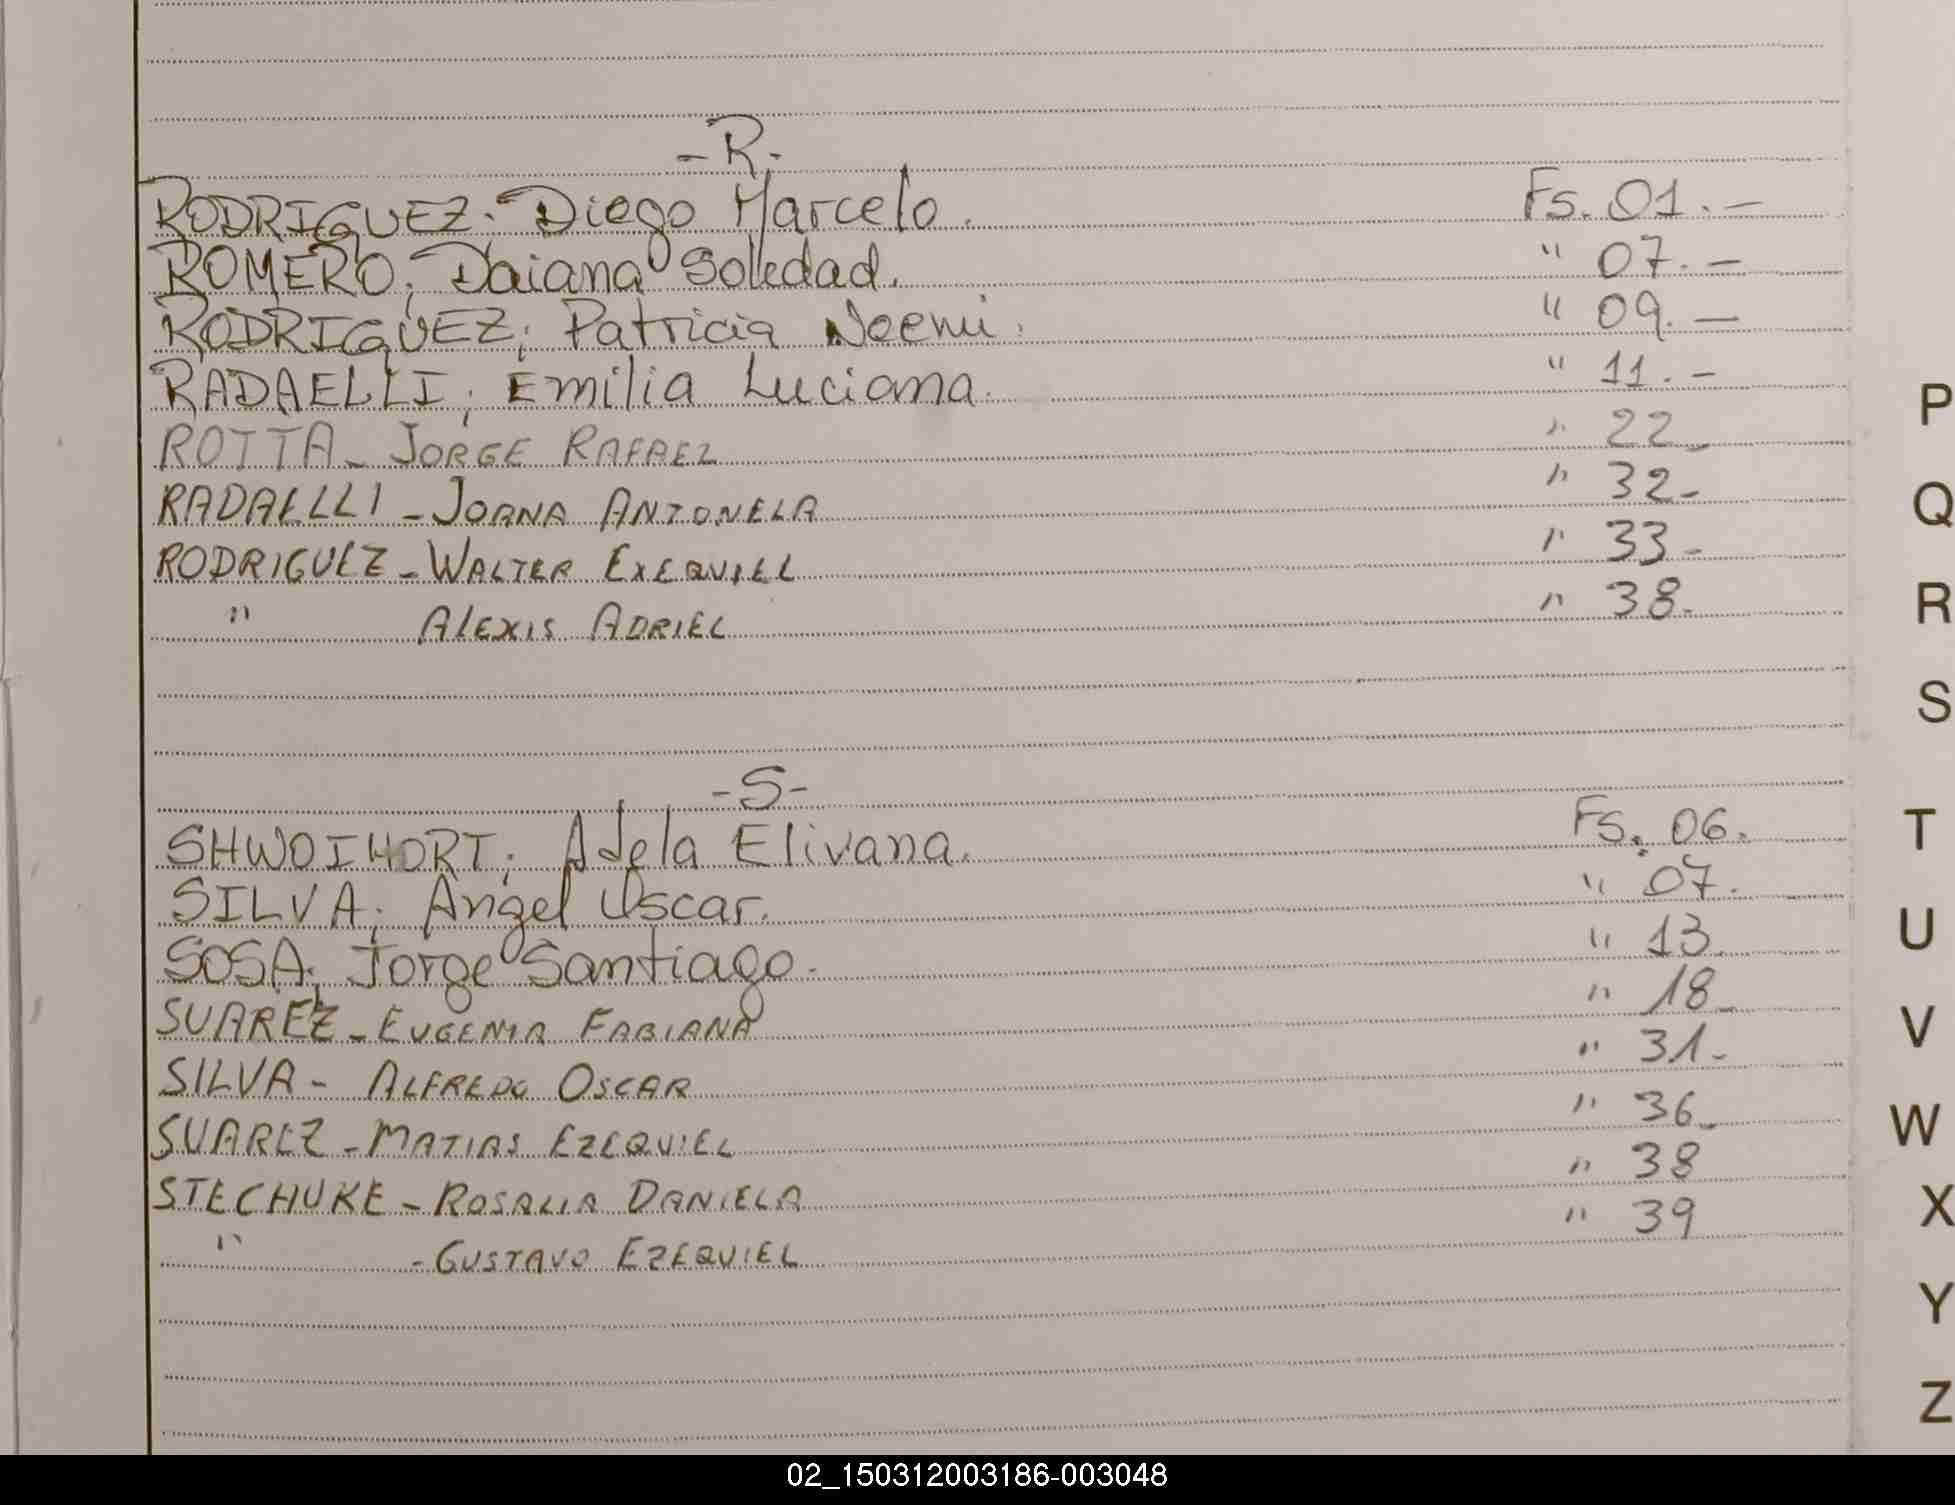 -R-
RODRIGUEZ; Diego Marcelo. Fs. 01.-
ROMERO; Daiana Soledad. " 07.-
RODRIGUEZ; Patricia Noemi. " 09.-
RADAELLI; Emilia Luciana. " 11.-
ROTTA- JORGE RAFAEL " 22-
RADAELLI - JOANA ANTONELA " 32-
RODRIGUEZ - WALTER EXEQUIEL " 33-
" ALEXIS ADRIEL " 38-
-S-
SHWOIHORT; Adela Elivana. Fs. 06.
SILVA; Angel Oscar. " 07.
SOSA; Jorge Santiago. " 13.
SUAREZ - EUGENIA FABIANA " 18-
SILVA - ALFREDO OSCAR " 31-
SUAREZ - MATIAS EZEQUIEL " 36-
STECHUKE - ROSALIA DANIELA " 38
" - GUSTAVO EZEQUIEL " 39
P
Q
R
S
T
U
V
W
X
Y
Z
02_150312003186-003048